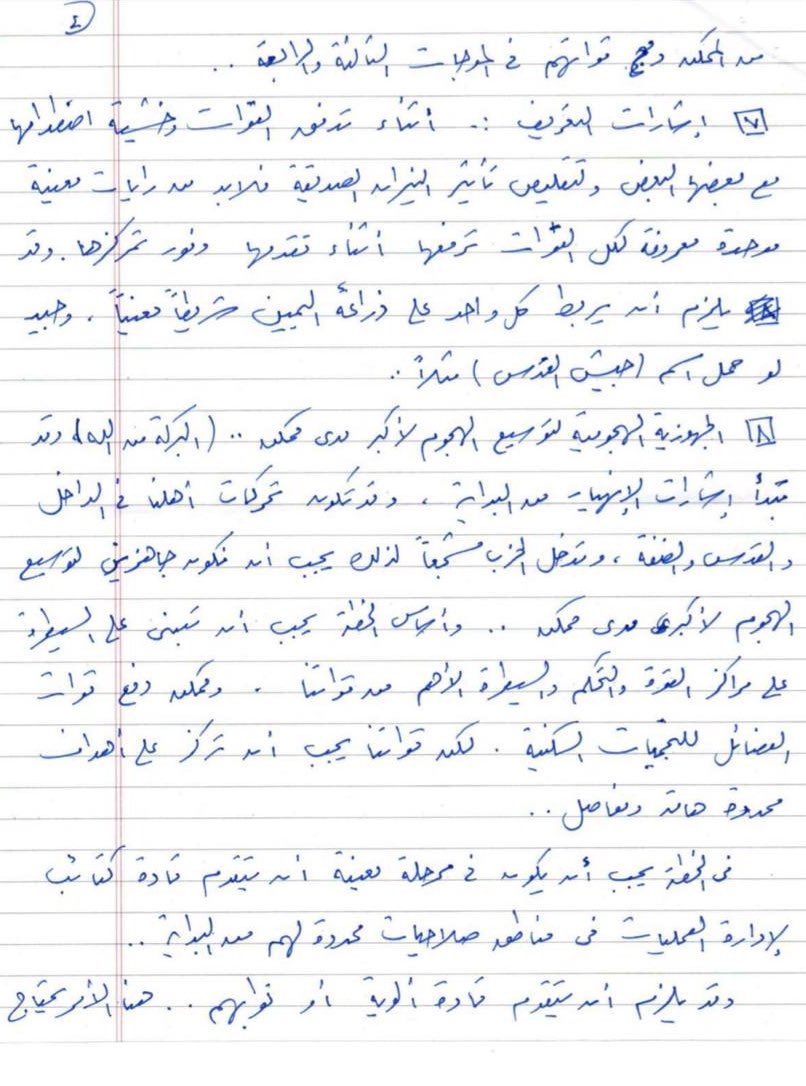 ٤
من الممكن دمج قواتهم في الموجات الثالثة والرابعة ..
٧ إشارات التعريف :. أثناء تدفق القوات وخشية اصطدامها
مع بعضها البعض ولتقليص تأثير النيران الصديقة فلابد من رايات معينة
موحدة معروفة لكل القوات ترفعها أثناء تقدمها وفور تمركزها. وقد
يلزم أن يربط كل واحد على ذراعه اليمين شريطاً معيناً ، وحبيذ
لو حمل اسم (جيش القدس) مثلاً ..
٨ الجهوزية الهجومية لتوسيع الهجوم لأكبر مدى ممكن .. (البركة من الله) وقد
تبدأ إشارات الإنهيار من البداية ، وقد تكون تحركات أهلنا في الداخل
والقدس والضفة ، وتدخل الحزب مشجعاً لذلك يجب أن نكون جاهزين لتوسيع
الهجوم لأكبر مدى ممكن .. وأساس الخطة يجب أن تبنى على السيطرة
على مراكز القوة والتحكم والسيطرة الأهم من قواتنا . وممكن دفع قوات
الفصائل للتجمعات السكنية . لكن قواتنا يجب أن تركز على أهداف
محدودة هامة ومفاصل ..
في الخطة يجب أن يكون في مرحلة معينة أن يتقدم قادة كتائب
لإدارة العمليات في مناطق صلاحيات محددة لهم من البداية ..
وقد يلزم أن يتقدم قادة ألوية أو نوابهم .. هنا الأمر يحتاج